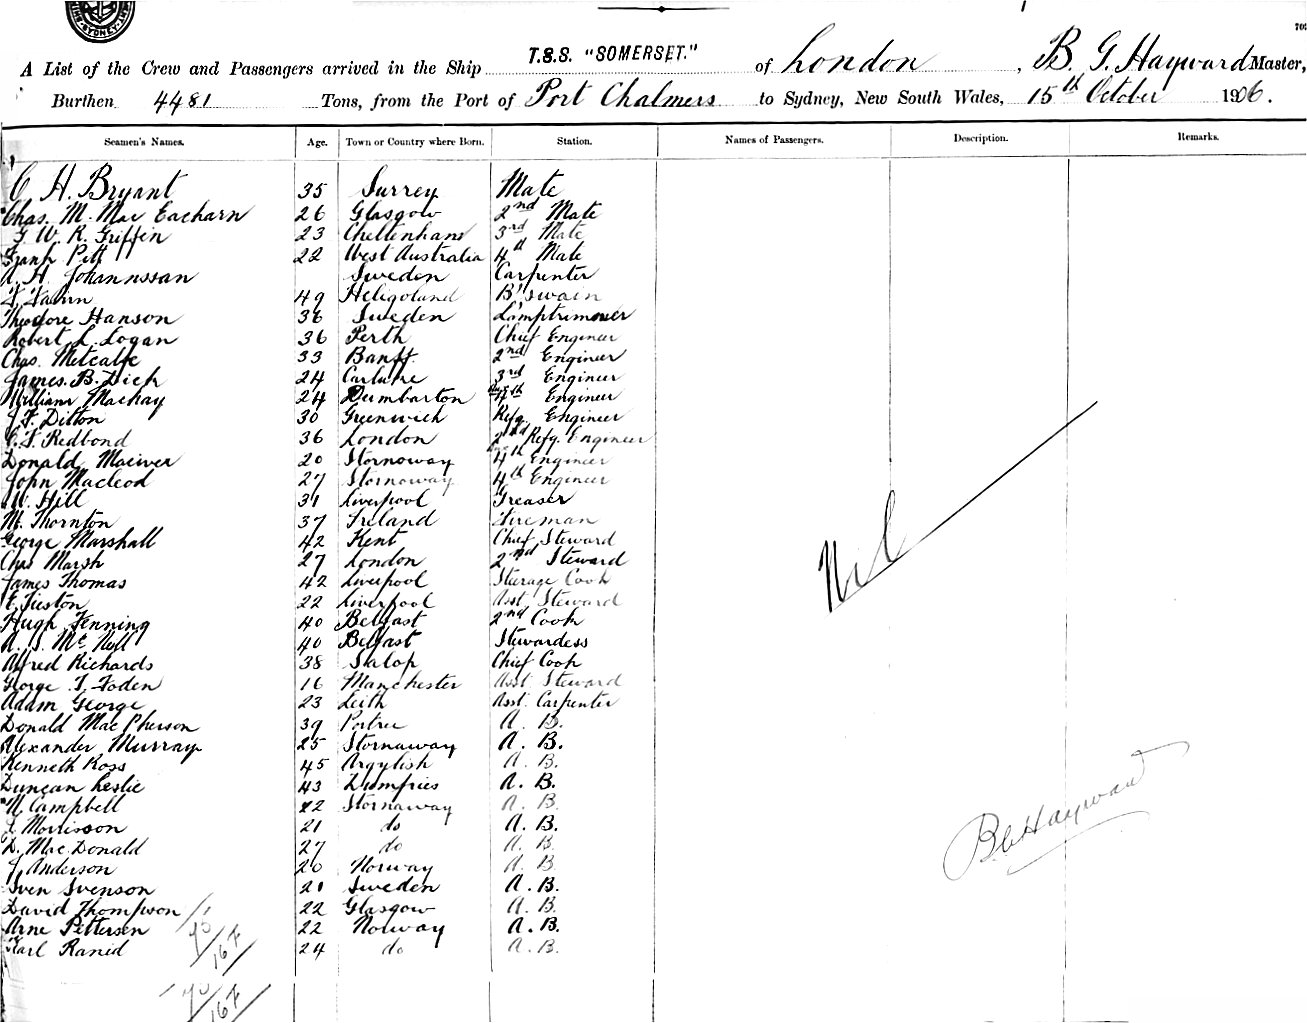 SYDNEY
T.S.S. "SOMERSET."
A List of the Crew and Passengers arrived in the Ship of London, B. G. Hayward Master,
Burthen 4481 Tons, from the Port of Port Chalmers to Sydney, New South Wales, 15th October 1906.
Seamen's Names. Age. Town or Country where Born. Station. Names of Passengers. Description. Remarks.
C H. Bryant 35 Surrey Mate
Chas. M. Mac Eacharn 26 Glasgow 2nd Mate
G W. R. Griffin 23 Cheltenham 3rd Mate
Frank Pitt 22 West Australia 4th Mate
A. H. Johannssan Sweden Carpenter
49 Heligoland B'swain
Theodore Hanson 36 Sweden Lamptrimmer
Robert L. Logan 36 Perth Chief Engineer
Chas. Metcalfe 33 Banff. 2nd Engineer
James. B. Dick 24 Carluke 3rd Engineer
William Mackay 24 Dumbarton 4th Engineer
J. F. Ditton 30 Greenwich Refg. Engineer
C. F. Redbond 36 London 2nd Refg. Engineer
Donald Maciver 20 Stornoway 4th Engineer
John Macleod 27 Stornoway 4th Engineer
W. Hill 31 Liverpool Greaser
M. Thornton 37 Ireland Fireman
George Marshall 42 Kent Chief Steward
Chas Marsh 27 London 2nd Steward
James Thomas 42 Liverpool Steerage Cook
22 Liverpool Asst. Steward
Hugh Fenning 40 Belfast 2nd Cook
A. S. Mc Neill 40 Belfast Stewardess
Alfred Richards 38 Salop Chief Cook
George T. Foden 16 Manchester Asst Steward
Adam George 23 Leith Asst. Carpenter
Donald Mac Pherson 39 Portree A. B.
Alexander Murray 25 Stornaway A. B.
Kenneth Ross 45 Argylish A. B.
Duncan Leslie 43 Dumfries A. B.
N. Campbell 22 Stornaway A. B.
J. Morrisson 21 do A. B.
D. Mac Donald 27 do A. B.
J. Anderson 20 Norway A. B
Sven Svenson 21 Sweden A. B.
David Thompson 22 Glasgow A. B.
Arne Pettersen 22 Norway A. B.
Karl Ranid 24 do A. B.
Nil
B G Hayward